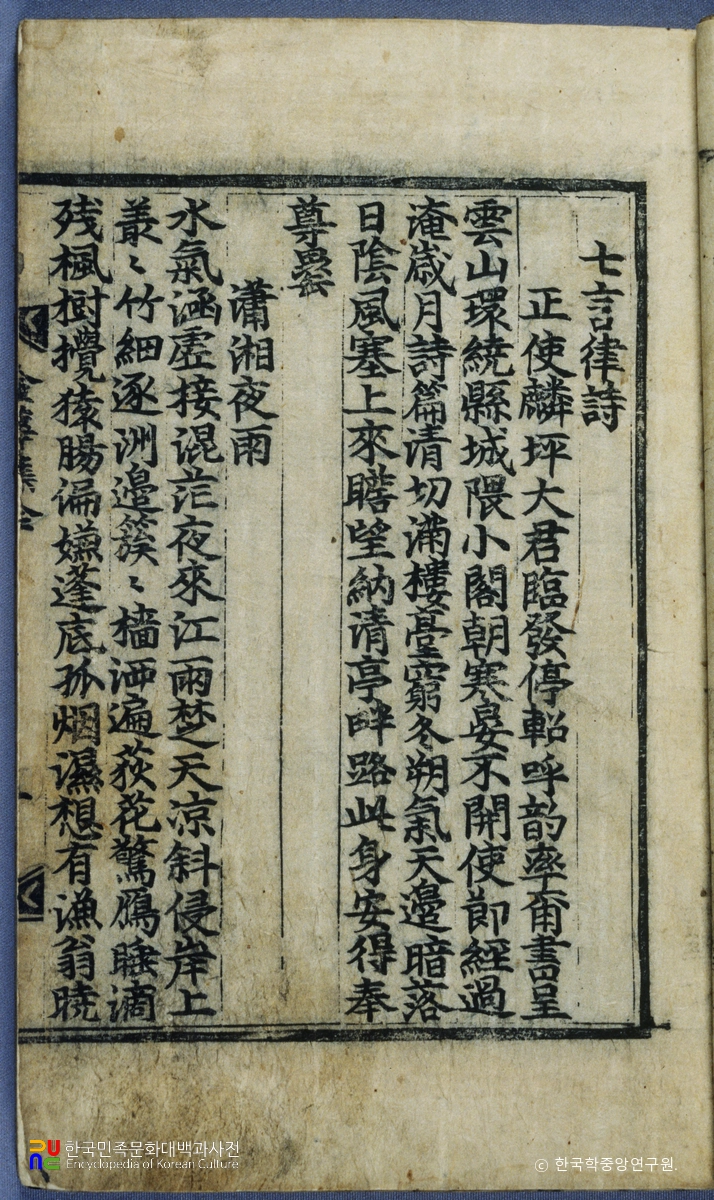 七言律詩
正使麟坪大君臨發停軺呼韵率爾書呈
雲山環繞縣城隈小閣朝寒晏不開使節經過
淹歲月詩篇清切滿樓臺窮冬朔氣天邊暗落
日陰風塞上來瞻望納清亭畔路此身安得奉
尊罍
瀟湘夜雨
水氣涵虛接混茫夜來江雨楚天凉斜侵岸上
叢〻竹細逐洲邊簇〻檣洒遍荻花驚鴈睡滴
残楓樹攪猿腸偏嫌蓬底孤烟濕想有漁翁曉
한국민족문화대백과사전
Encyclopedia of Korean Culture
© 한국학중앙연구원.